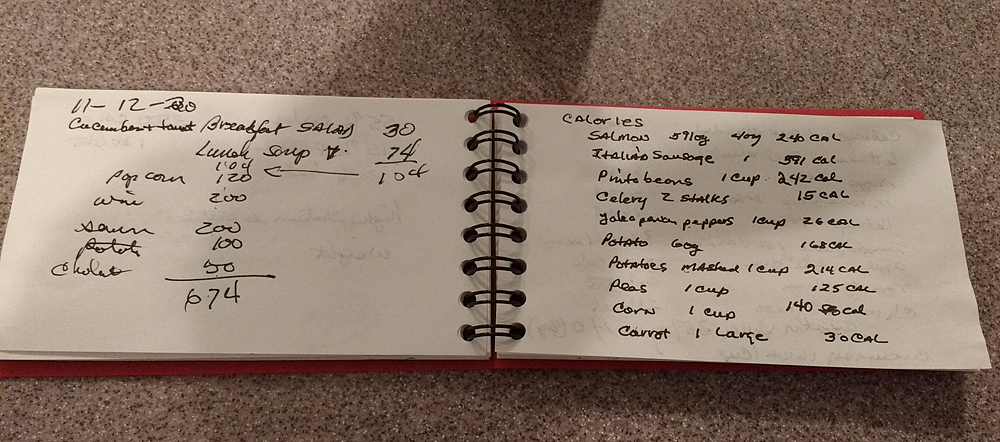 11-12-20
Cucumber + Breakfast SALAD 30
Lunch Soup 74
104 104
Popcorn 120
wine 200
200
Potato 100
50
674
CALORIES
SALMON 4oz 240 CAL
Italian Sausage 1 391 Cal
Pinto beans 1 cup 242 cal
Celery 2 STALKS 15 CAL
peppers 1 cup 26 CAL
POTATO 60g 168 CAL
POTATOES MAShed 1 cup 214 CAL
Peas 1 cup 125 CAL
CORN 1 cup 140 cal
CARROT 1 LARGE 30 CAL